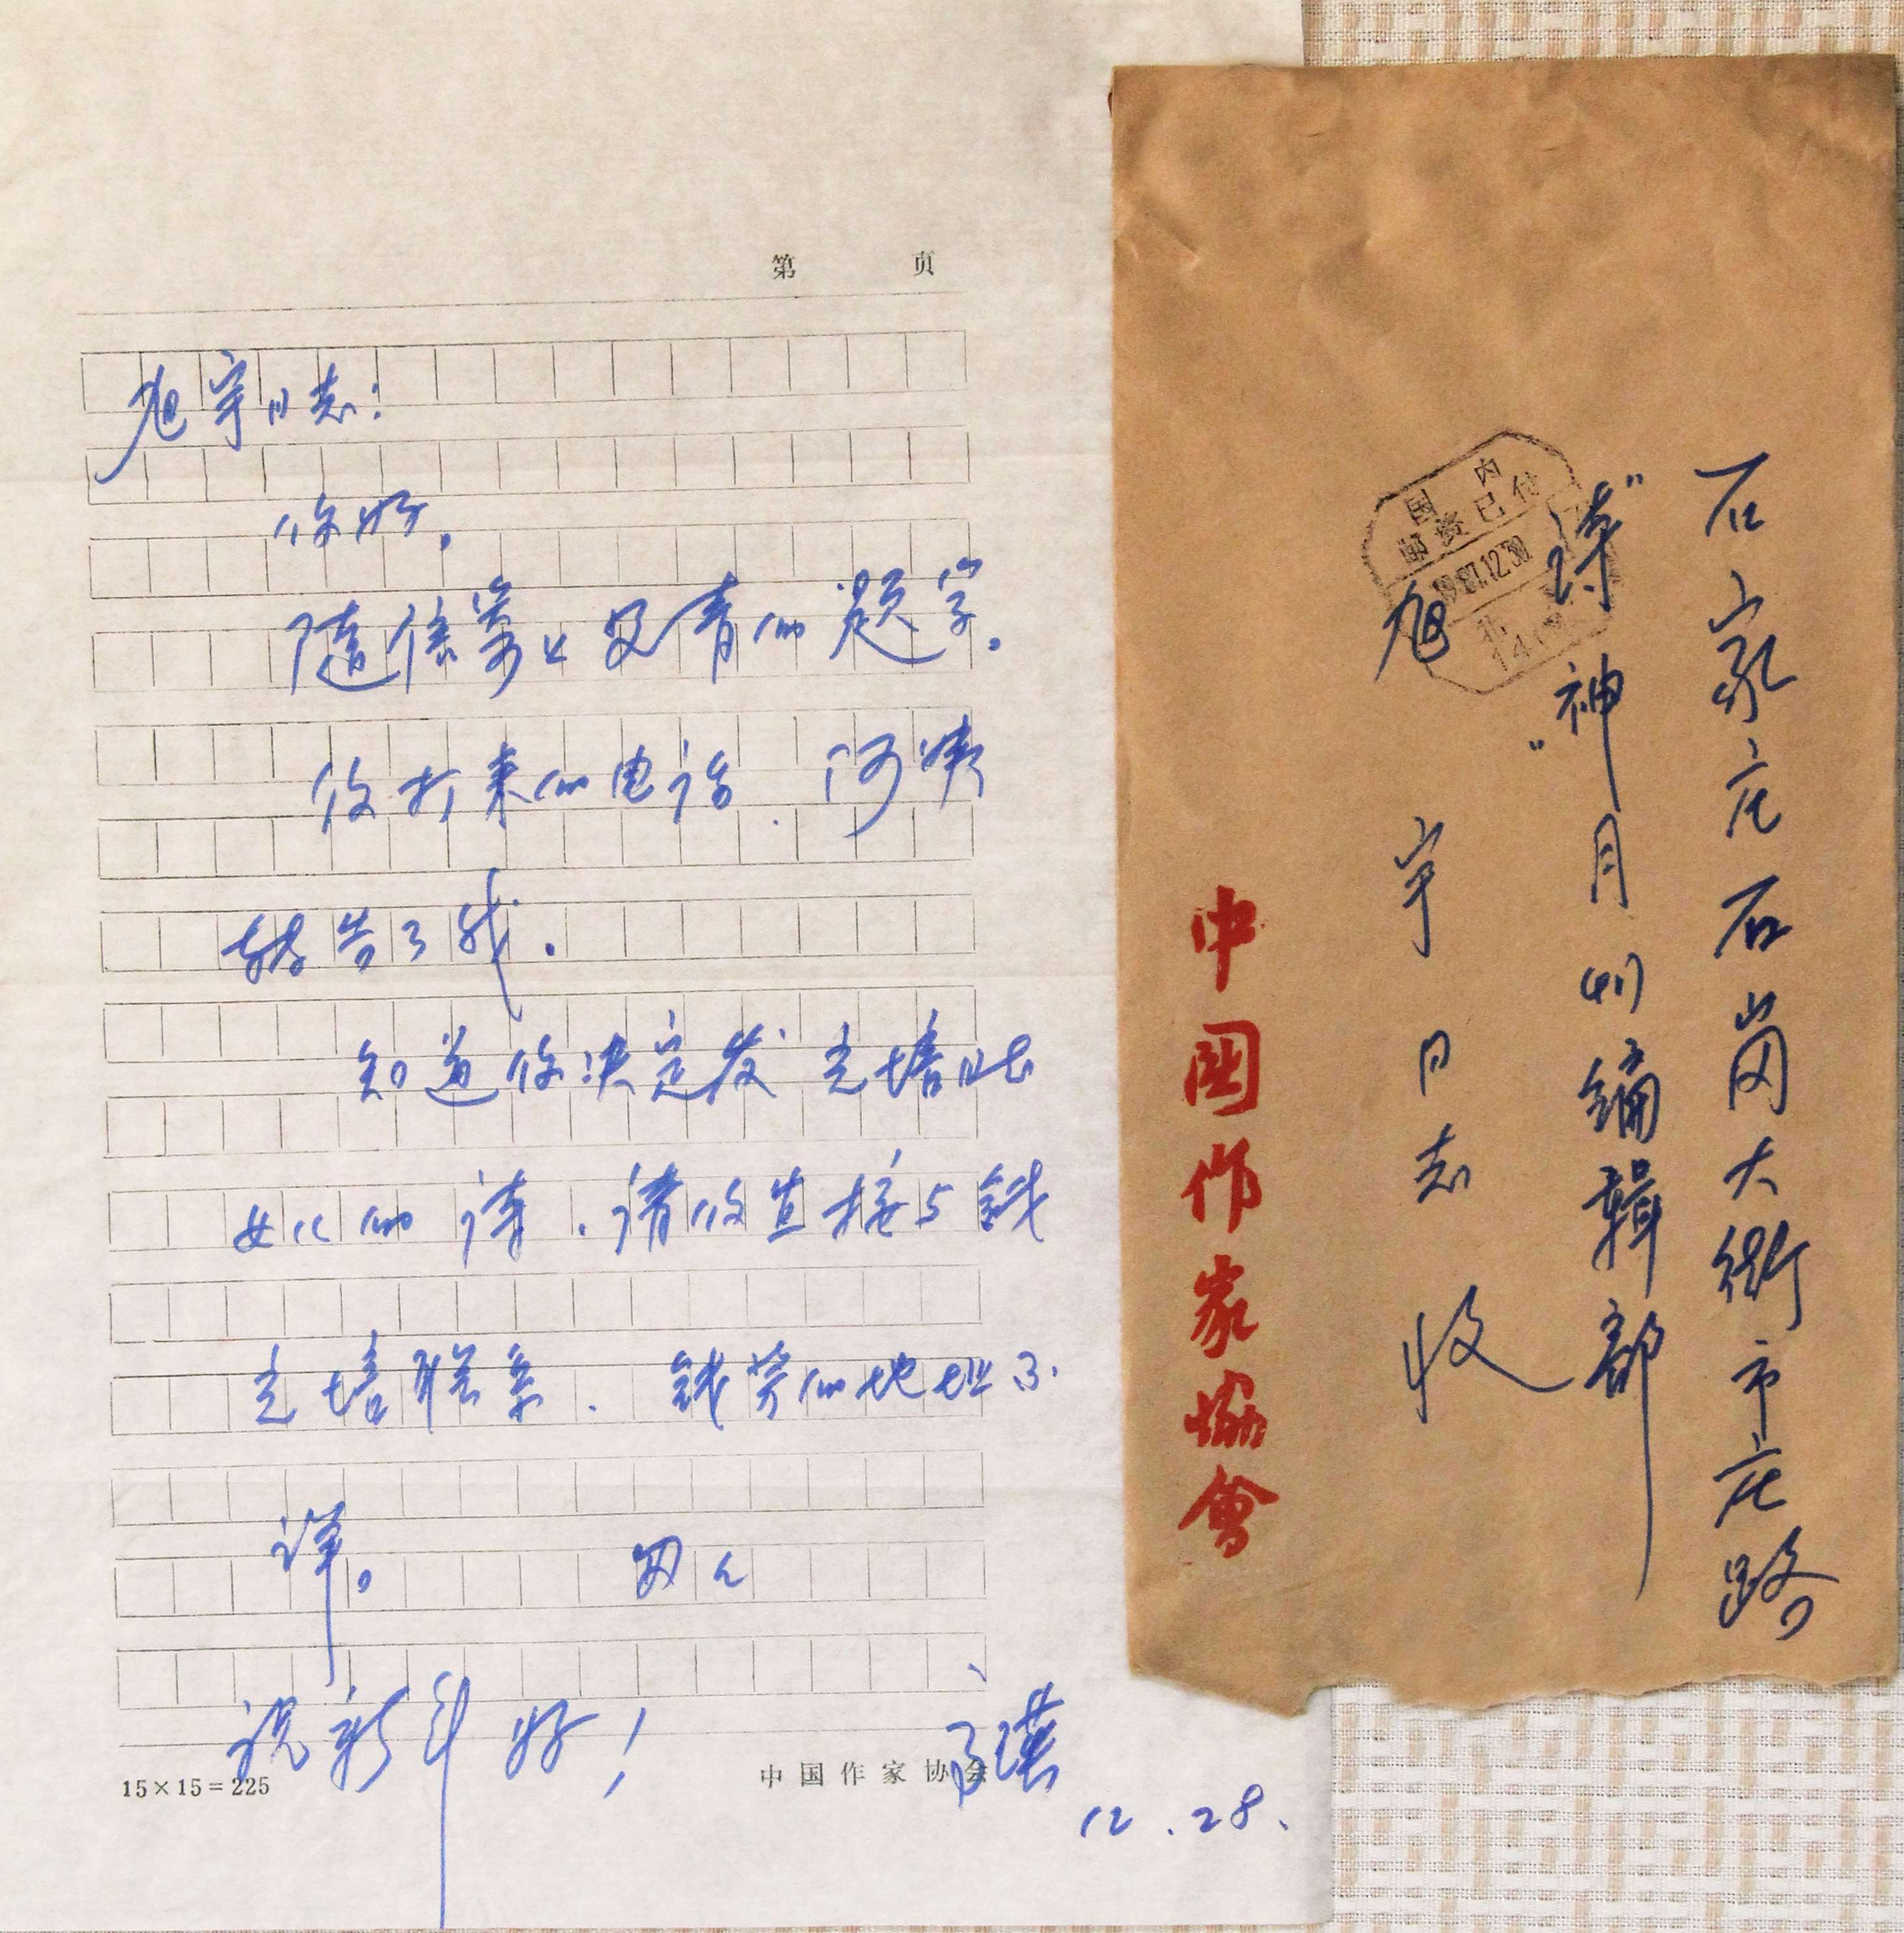 第 页
旭宇同志:
你好。
随信寄上艾青的题字。
你打来的电话.阿姨
转告了我。
知道你决定发 志培
女儿的诗.请你直接与钱
志培联系.钱 的地址不
详。
祝新年好!
12.28.
15×15=225
中国作家协会
石家庄石岗大街市庄路
"诗神"月刊编辑部
旭宇同志 收
中国作家协會
国内
邮资已付
1987.12.30